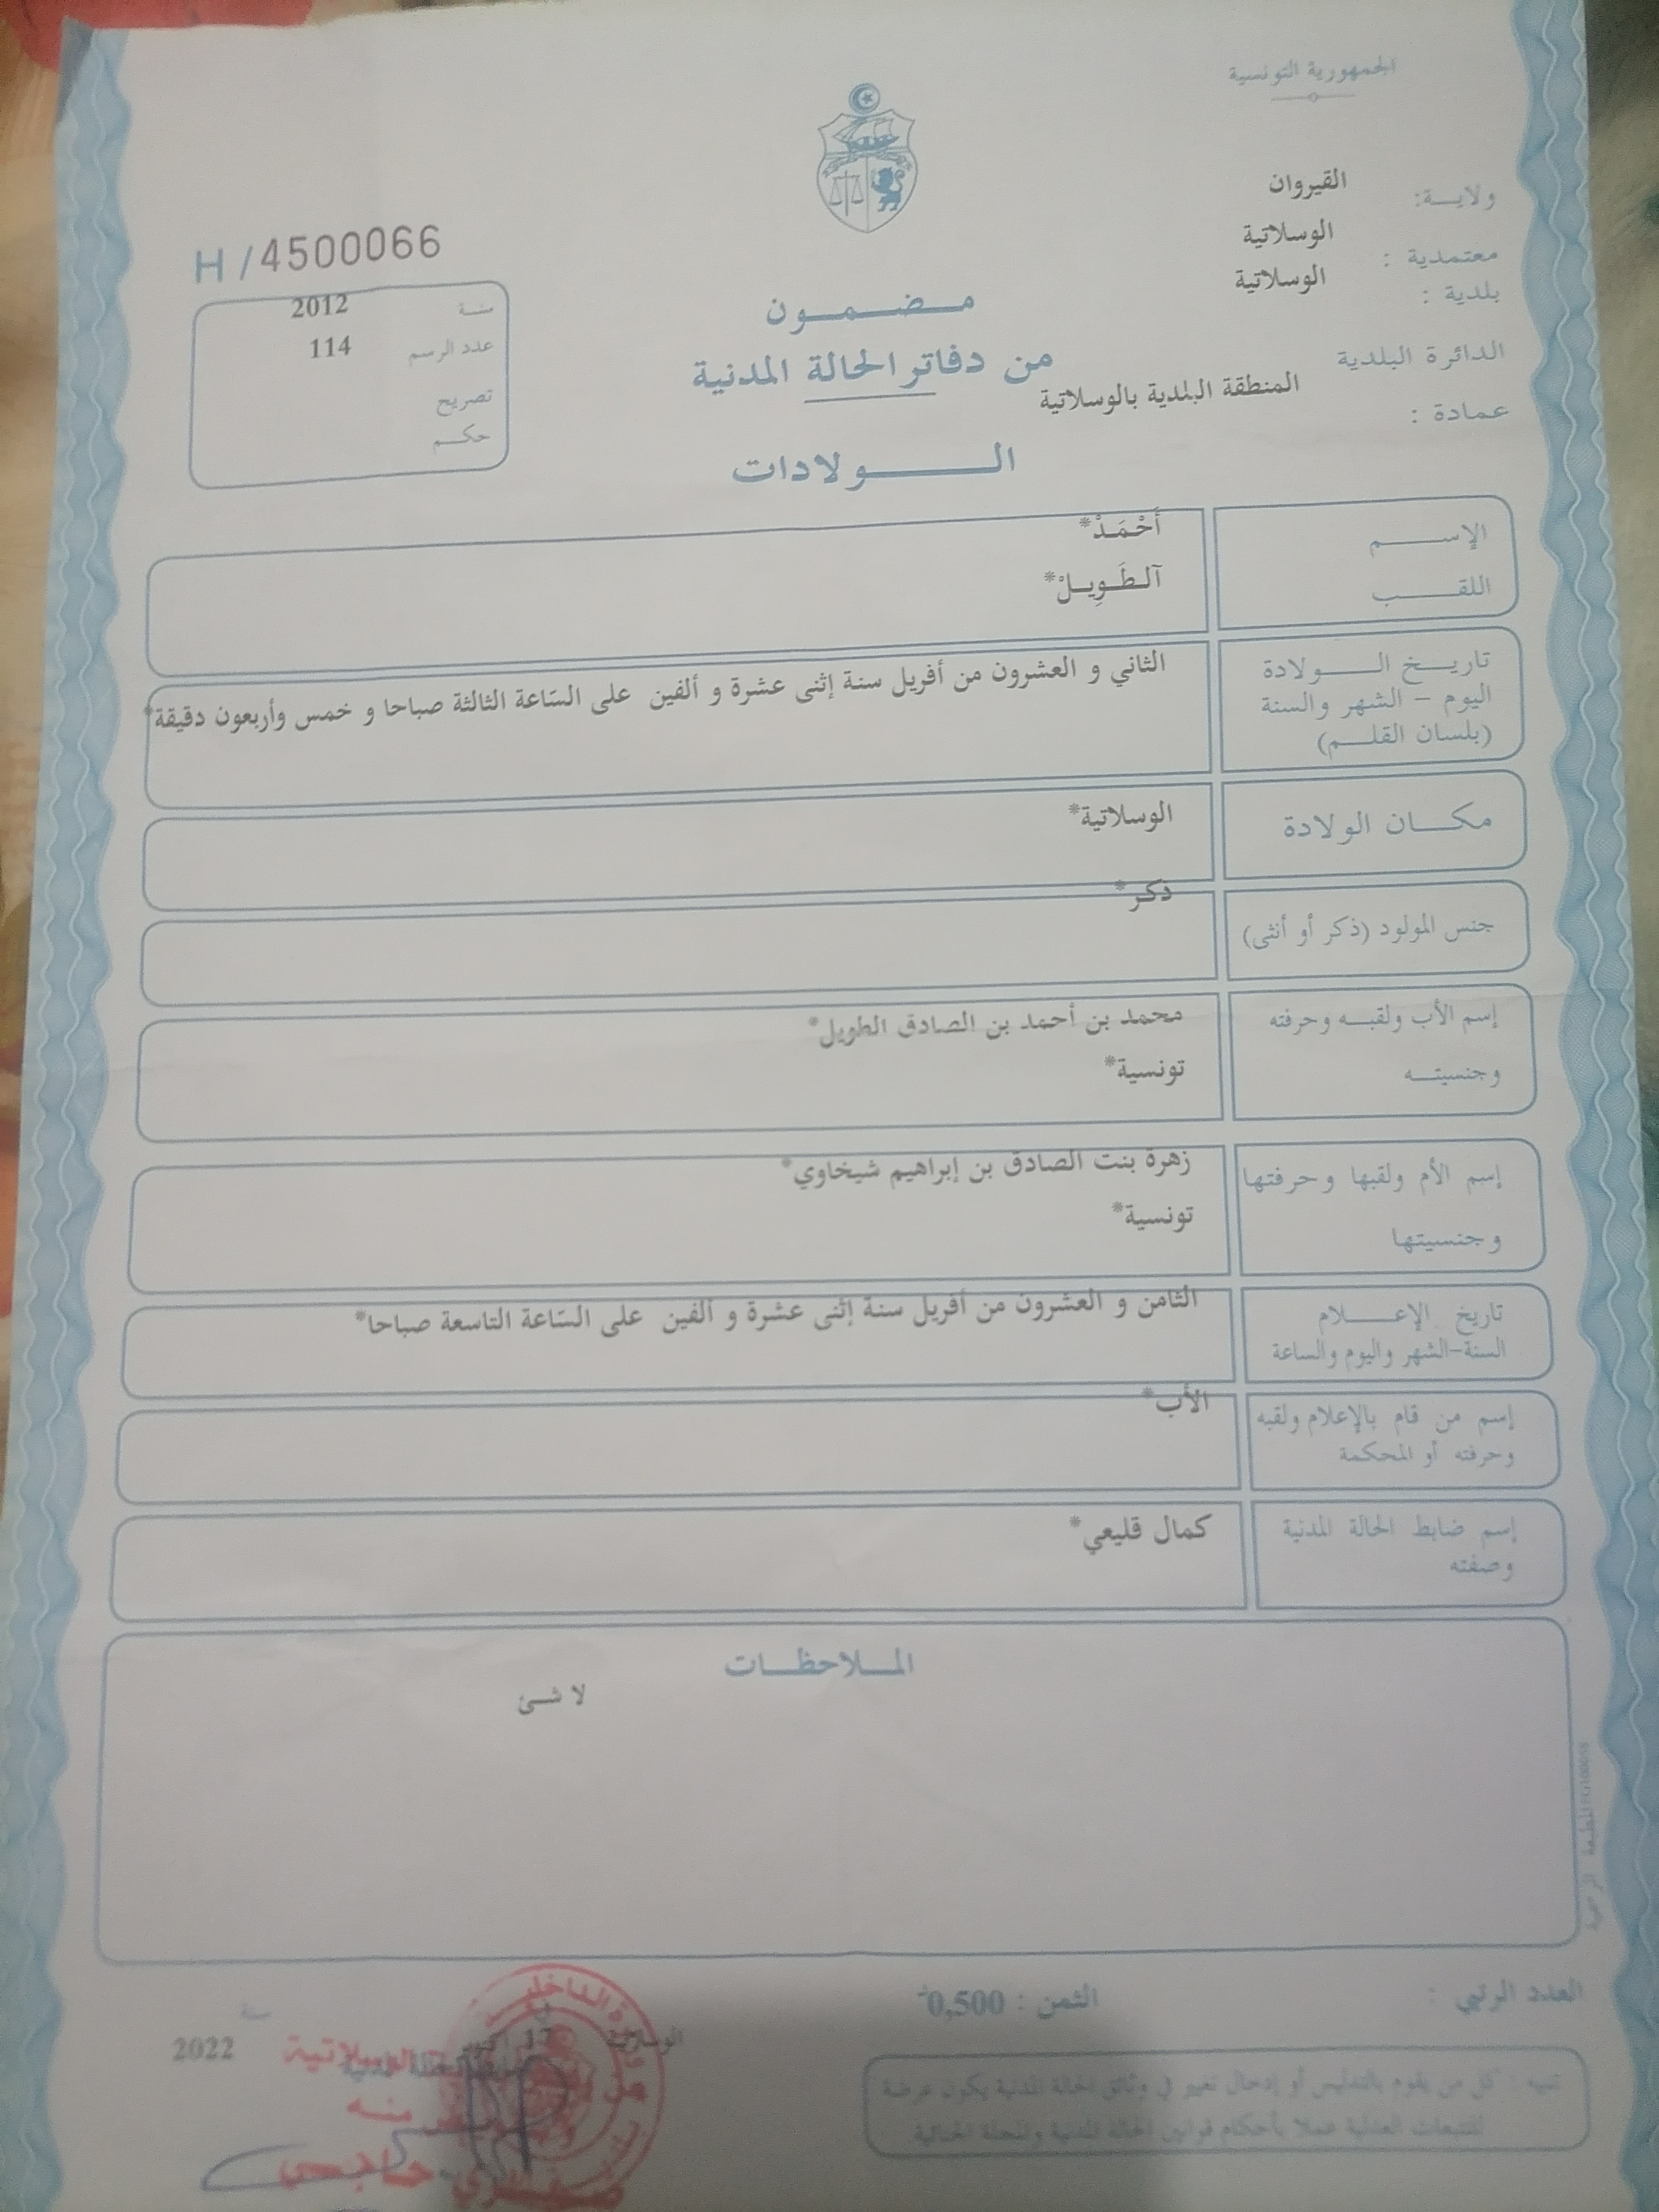 الجمهورية التونسية
ولايـــة: القيروان
معتمدية : الوسلاتية
بلدية : الوسلاتية
الدائرة البلدية
عمادة : المنطقة البلدية بالوسلاتية
مـــضـــمـــون
من دفاتر الحالة المدنية
الـــــــولادات
H / 4500066
سنة 2012
عدد الرسم 114
تصريح
حكـــم
الإســـــــم أَحْمَدْ*
اللقــــــب آلـطَـوِيـلْ*
تاريـــخ الــــــولادة
اليوم – الشهر والسنة
(بلسان القلــــم)
الثاني و العشرون من أفريل سنة إثنى عشرة و ألفين على السّاعة الثالثة صباحا و خمس وأربعون دقيقة*
مكـــان الولادة الوسلاتية*
جنس المولود (ذكر أو أنثى) ذكر*
إسم الأب ولقبــه وحرفته محمد بن أحمد بن الصادق الطويل*
وجنسيتـــه تونسية*
إسم الأم ولقبها وحرفتها زهرة بنت الصادق بن إبراهيم شيخاوي*
وجنسيتها تونسية*
تاريخ الإعـــــلام الثامن و العشرون من أفريل سنة إثنى عشرة و ألفين على السّاعة التاسعة صباحا*
السنة-الشهر واليوم والساعة
إسم من قام بالإعلام ولقبه الأب*
وحرفته أو المحكمة
إسم ضابط الحالة المدنية كمال قليعي*
وصفته
المـــلاحظـــات
لا شـئ
العدد الرتبي :
الثمن : 0,500د
الوسلاتية 17
سنة
2022
الوسلاتية
منـه
حاجي
تنبيه : كل من يقوم بالتدليس أو إدخال تغيير في وثائق الحالة المدنية يكون عرضة
للتتبعات العدلية عملا بأحكام قوانين الحالة المدنية والمجلة الجنائية.